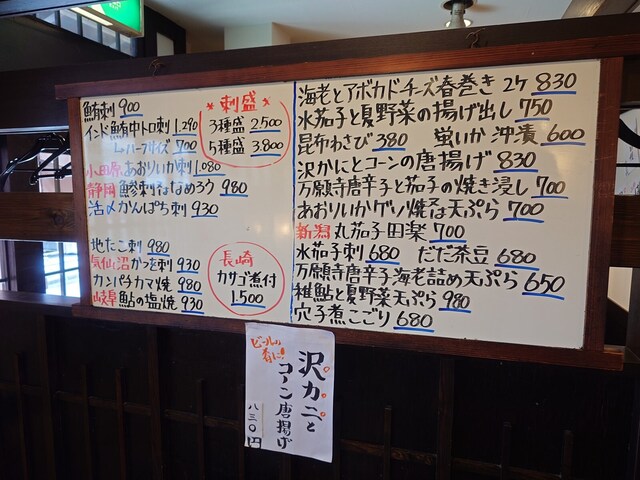 鮪刺 900
インド鮪中トロ刺 1.290
ハーフサイズ 700
小田原 あおりいか刺 1.080
静岡 鯵刺 なめろう 980
活〆かんぱち刺 930
地たこ刺 980
気仙沼 かつを刺 930
カンパチカマ焼 980
岐阜 鮎の塩焼 930
刺盛
3種盛 2.500
5種盛 3.800
長崎
カサゴ煮付
1.500
海老とアボカドチーズ春巻き 2ケ 830
水茄子と夏野菜の揚げ出し 750
昆布わさび 380 蛍いか沖漬 600
沢かにとコーンの唐揚げ 830
万願寺唐辛子と茄子の焼き浸し 700
あおりいかゲソ焼 天ぷら 700
新潟 丸茄子田楽 700
水茄子刺 680 だだ茶豆 680
万願寺唐辛子海老詰め天ぷら 650
稚鮎と夏野菜天ぷら 980
穴子煮こごり 680
ビールの
肴に!
沢カニと
コーン唐揚げ
八三〇円